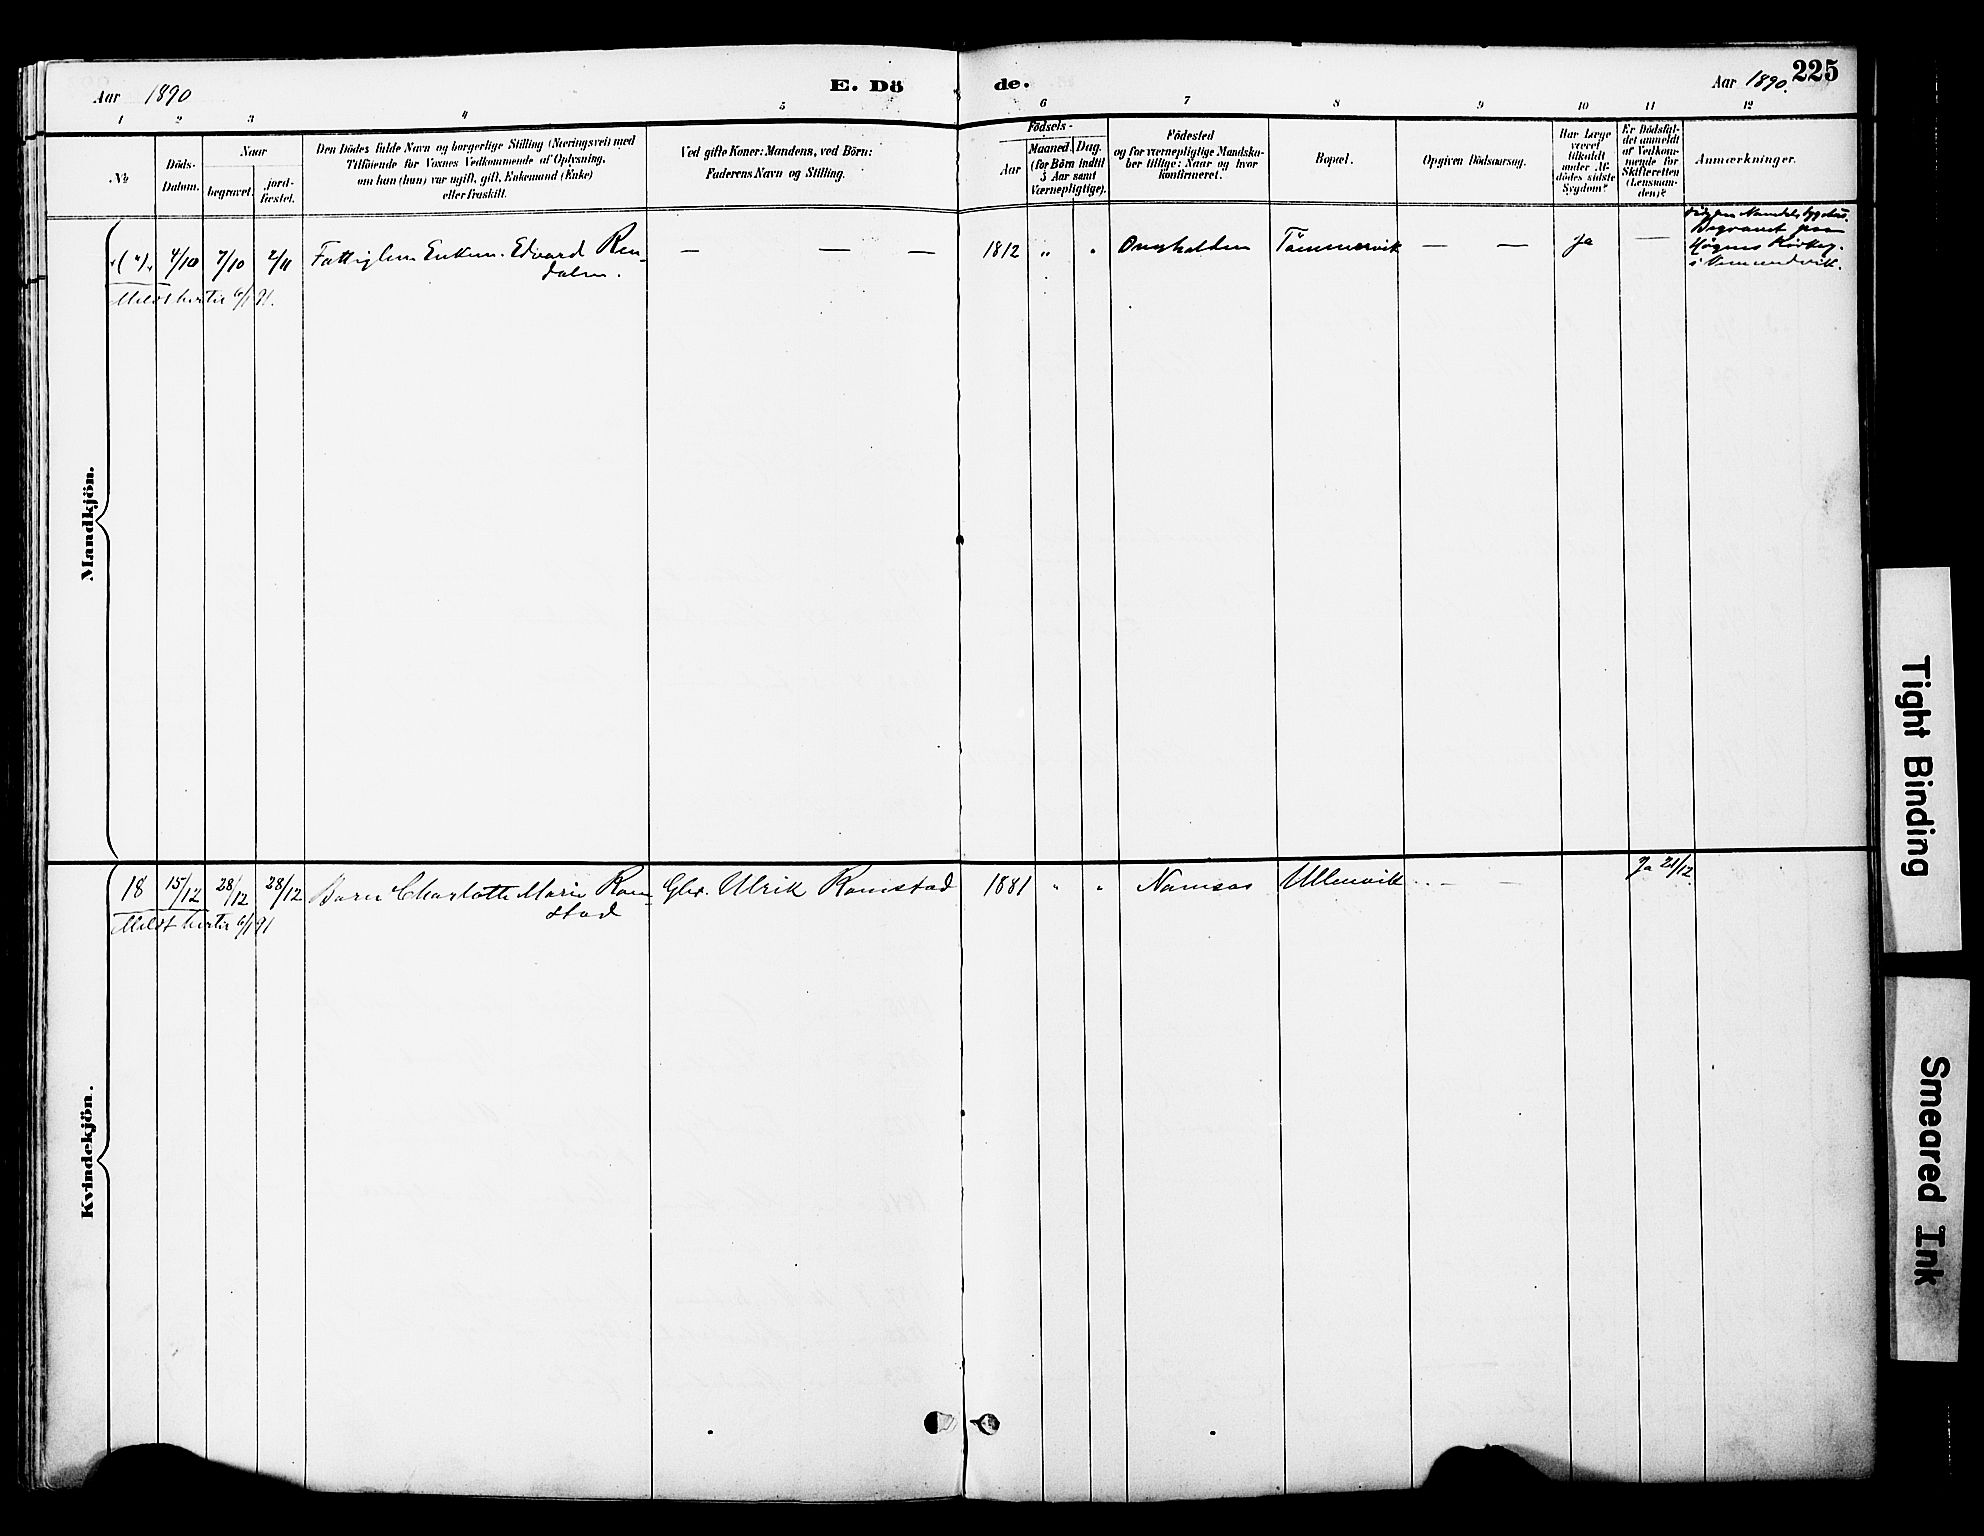 Aar 1890
E. Dö
de.
Aar 1890.
225
1 2 3 4 5 6 7 8 9 10 11 12
№
Döds-
Datum.
Naar
begravet.
jord-
fæstet.
Den Dödes fulde Navn og borgerlige Stilling (Næringsvei) med
Tilföiende för Voxnes Vedkommende af Oplysning,
om han (hun) var ugift, gift, Enkemand (Enke)
eller fraskilt.
Ved gifte Koner: Mandens, ved Börn:
Faderens Navn og Stilling.
Födsels-
Aar
Maaned. Dag.
(for Börn indtil
5 Aar samt
Værnepligtige).
Födested
og for værnepligtige Mandska-
ber tillige: Naar og hvor
konfirmeret.
Bopæl.
Opgiven Dödsaarsag.
Har Læge
været
tilkaldt
under Af-
dödes sidste
Sygdom?
Er Dödsfal-
det anmeldt
af Vedkom-
mende for
Skifteretten
(Lensman-
den)?
Anmærkninger.
Mandkjön.
"(")" 4/10 7/10 2/11 Fattiglem Enkem. Edvard Ren-
dalen.
— — —
1812 " "
Tømmervik — — Ja —
Begravet paa
i Vemundvik.
Meldt hertil 6/1 91.
Kvindekjön.
18 15/12 28/12 28/12 Barn Charlotte Marie Ram-
stad
Gbr. Ulrik Ramstad 1881 " " Namsos Ullenvik — — Ja 21/12.
Meldt hertil 6/1 91
Tight Binding
Smeared Ink